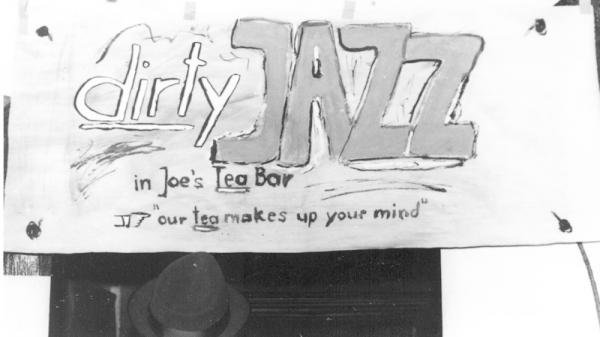 dirty JAZZ
in Joe's Tea Bar
"our tea makes up your mind"